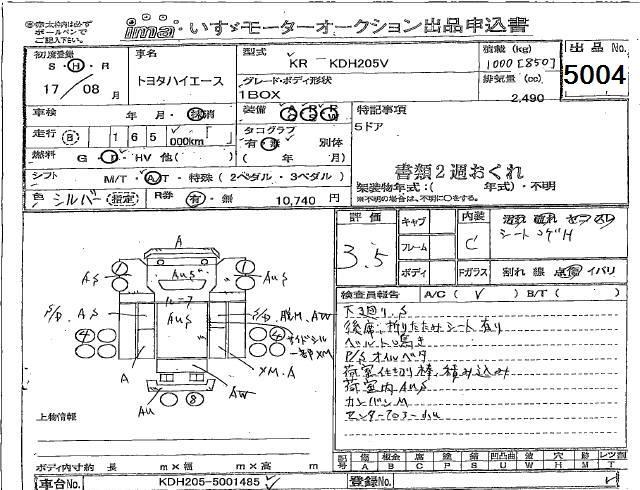 ima いすゞモーターオークション出品申込書
※赤太枠内は必ず
ボールペンで
ご記入下さい。
初度登録
S・H・R
17/08月
車名
トヨタハイエース
型式
KR － KDH205V
グレード・ボディ形状
1BOX
積載(kg)
1000[850]
排気量(cc)
2,490
出品No.
5004
車検 年・月・抹消
走行 165 000km
燃料 G・D・HV 他( )
シフト M/T・A/T・特殊(2ペダル・3ペダル)
色 シルバー (指定)
R券 有・無 10,740円
装備
タコグラフ
有・無 別体
( 年 月)
特記事項
5ドア
書類2週おくれ
架装物年式:( 年式)・不明
※不明の場合は、不明に○をする。
評価
3.5
キャブ
フレーム
ボディ
内装
C
シートコゲH
Fガラス 割れ 線 点傷 イバリ
検査員報告 A/C( ✓ ) B/T( )
下回り.S
後席.折りたたみシート有り
ベルト鳴き
P/Sオイルベタ
荷室仕切り棒.積み込み
荷室内AUS
カンバンM
A
AUS
AS
AUS
ルーフ
AUS
S/D.AS
S/D.脱M.AW
サイドシル
一部XM
4
4
A
XM.A
AU
AW
8
上物情報
ボディ内寸約 長 m×幅 m×高 m
記号 傷A 板金B 腐C 塗P 錆S 凹凸曲U 波W 穴H 跡M レツ割T
車台No. KDH205-5001485
登録No.